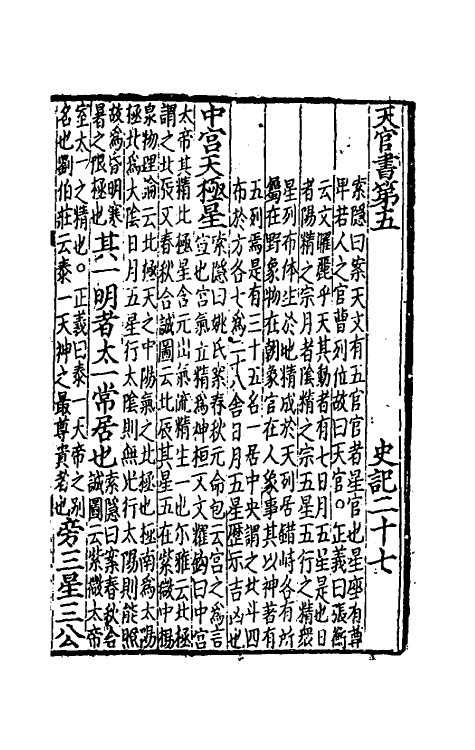 天官書第五 史記二十七
索隱曰案天文有五官官者星官也星座有尊
卑若人之官曹列位故曰天官。正義曰張衡
云文曜麗乎天其動者有七日月五星是也日
者陽精之宗月者陰精之宗五星五行之精衆
星列布體生於地精成於天列居錯峙各有所
屬在野象物在朝象官在人象事其以神著有
五列焉是有三十五名一居中央謂之北斗四
布於方各七爲二十八舍日月五星歷示吉凶也
中宮天極星
索隱曰姚氏案春秋元命包云宮之爲言
宣也宮氣立精爲神垣又文耀鈎曰中宮
太帝其精北極星含元出氣流精生一也尓雅云北極
謂之北辰又春秋合誠圖云北辰其星五在紫微中楊
泉物理論云北極天之中陽氣之北極也極南爲太陽
極北爲太陰日月五星行太陰則無光行太陽則能照
故爲昏明寒
暑之限極也
其一明者太一常居也
索隱曰案春秋合
誠圖云紫微太帝
室太一之精也。正義曰泰一天帝之別
名也劉伯莊云泰一天神之最尊貴者也
旁三星三公